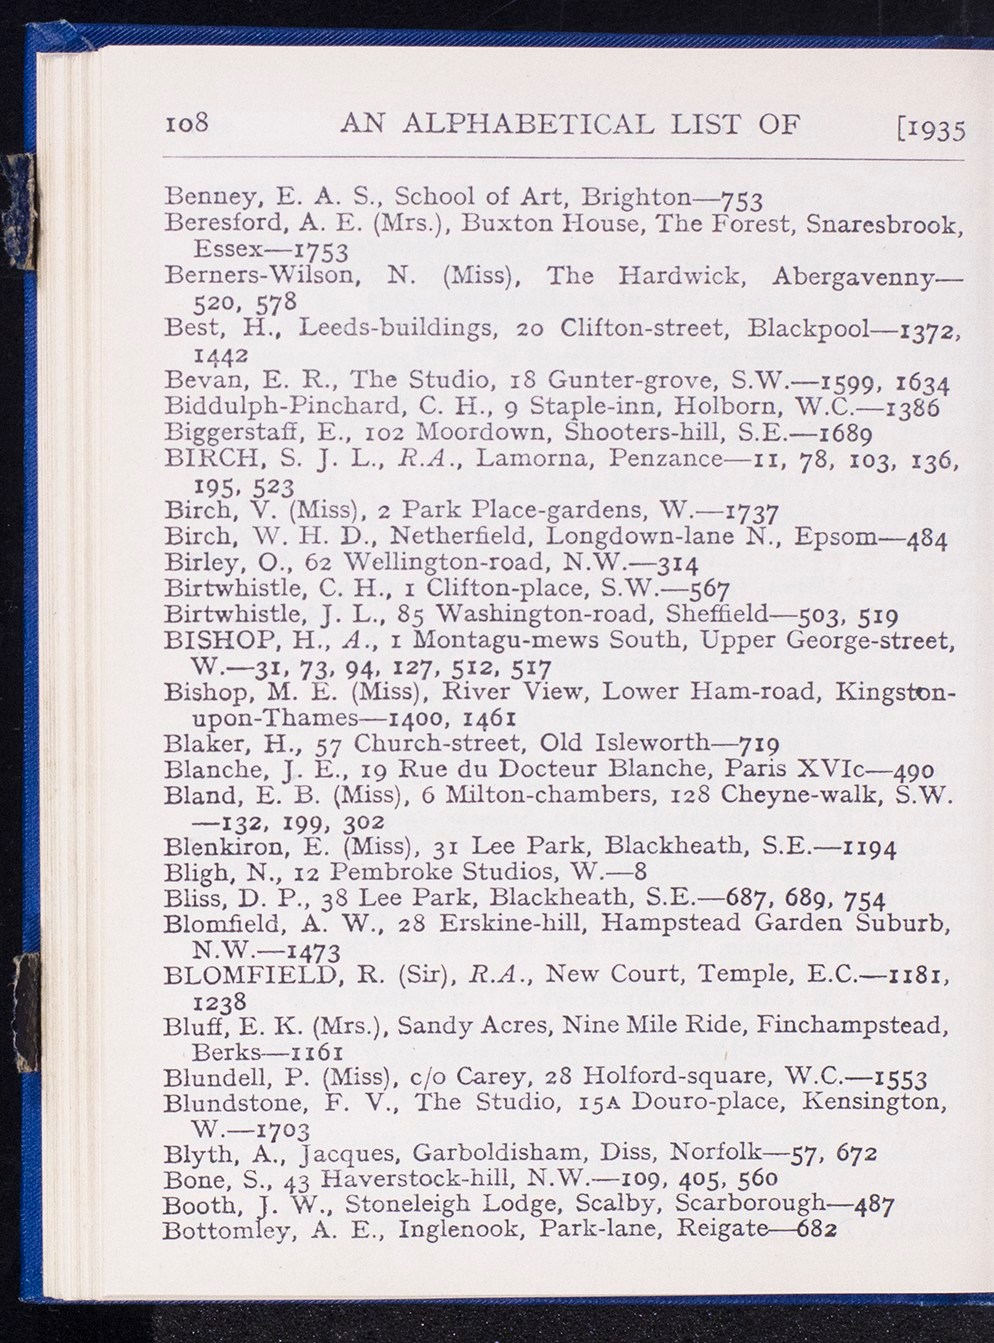 108 AN ALPHABETICAL LIST OF [1935
Benney, E. A. S., School of Art, Brighton—753
Beresford, A. E. (Mrs.), Buxton House, The Forest, Snaresbrook,
Essex—1753
Berners-Wilson, N. (Miss), The Hardwick, Abergavenny—
520, 578
Best, H., Leeds-buildings, 20 Clifton-street, Blackpool—1372,
1442
Bevan, E. R., The Studio, 18 Gunter-grove, S.W.—1599, 1634
Biddulph-Pinchard, C. H., 9 Staple-inn, Holborn, W.C.—1386
Biggerstaff, E., 102 Moordown, Shooters-hill, S.E.—1689
BIRCH, S. J. L., R.A., Lamorna, Penzance—11, 78, 103, 136,
195, 523
Birch, V. (Miss), 2 Park Place-gardens, W.—1737
Birch, W. H. D., Netherfield, Longdown-lane N., Epsom—484
Birley, O., 62 Wellington-road, N.W.—314
Birtwhistle, C. H., 1 Clifton-place, S.W.—567
Birtwhistle, J. L., 85 Washington-road, Sheffield—503, 519
BISHOP, H., A., 1 Montagu-mews South, Upper George-street,
W.—31, 73, 94, 127, 512, 517
Bishop, M. E. (Miss), River View, Lower Ham-road, Kingston-
upon-Thames—1400, 1461
Blaker, H., 57 Church-street, Old Isleworth—719
Blanche, J. E., 19 Rue du Docteur Blanche, Paris XVIc—490
Bland, E. B. (Miss), 6 Milton-chambers, 128 Cheyne-walk, S.W.
—132, 199, 302
Blenkiron, E. (Miss), 31 Lee Park, Blackheath, S.E.—1194
Bligh, N., 12 Pembroke Studios, W.—8
Bliss, D. P., 38 Lee Park, Blackheath, S.E.—687, 689, 754
Blomfield, A. W., 28 Erskine-hill, Hampstead Garden Suburb,
N.W.—1473
BLOMFIELD, R. (Sir), R.A., New Court, Temple, E.C.—1181,
1238
Bluff, E. K. (Mrs.), Sandy Acres, Nine Mile Ride, Finchampstead,
Berks—1161
Blundell, P. (Miss), c/o Carey, 28 Holford-square, W.C.—1553
Blundstone, F. V., The Studio, 15A Douro-place, Kensington,
W.—1703
Blyth, A., Jacques, Garboldisham, Diss, Norfolk—57, 672
Bone, S., 43 Haverstock-hill, N.W.—109, 405, 560
Booth, J. W., Stoneleigh Lodge, Scalby, Scarborough—487
Bottomley, A. E., Inglenook, Park-lane, Reigate—682